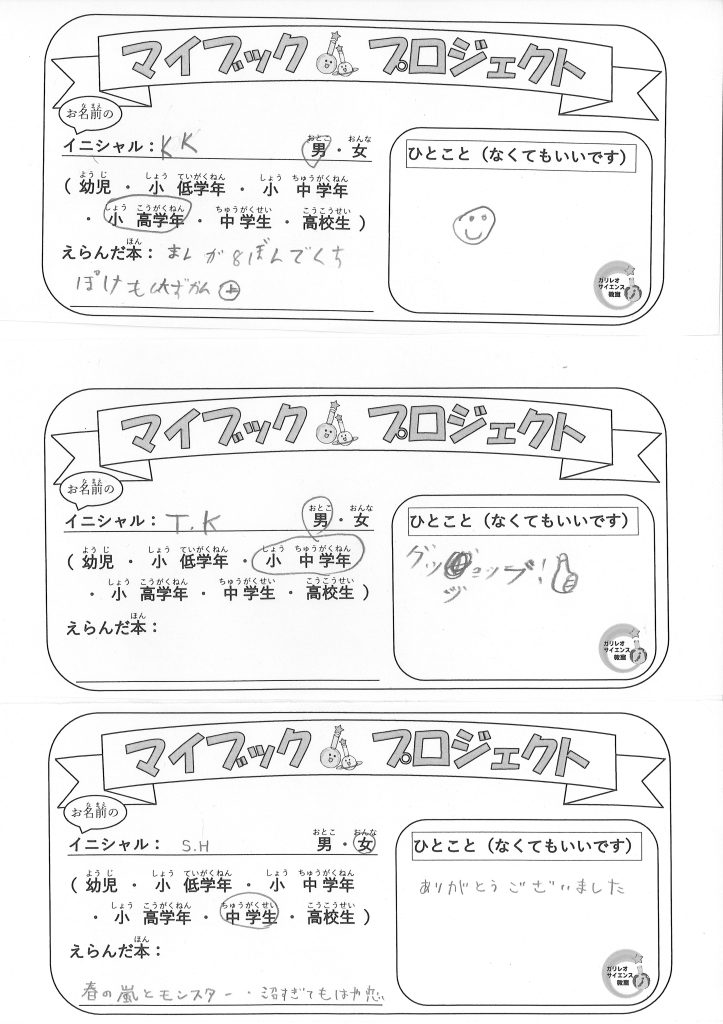 マイブックプロジェクト
お名前のイニシャル：KK 男・女
（幼児・小低学年・小中学年
・小高学年・中学生・高校生）
えらんだ本：まんが 8ぽんでくち
ぽけも大ずかん 上
ひとこと（なくてもいいです）
ガリレオ
サイエンス
教室
マイブックプロジェクト
お名前のイニシャル：T.K 男・女
（幼児・小低学年・小中学年
・小高学年・中学生・高校生）
えらんだ本：
ひとこと（なくてもいいです）
グッジョッブ！
ガリレオ
サイエンス
教室
マイブックプロジェクト
お名前のイニシャル：S.H 男・女
（幼児・小低学年・小中学年
・小高学年・中学生・高校生）
えらんだ本：
春の嵐とモンスター・沼すぎてもはや恋
ひとこと（なくてもいいです）
ありがとうございました
ガリレオ
サイエンス
教室